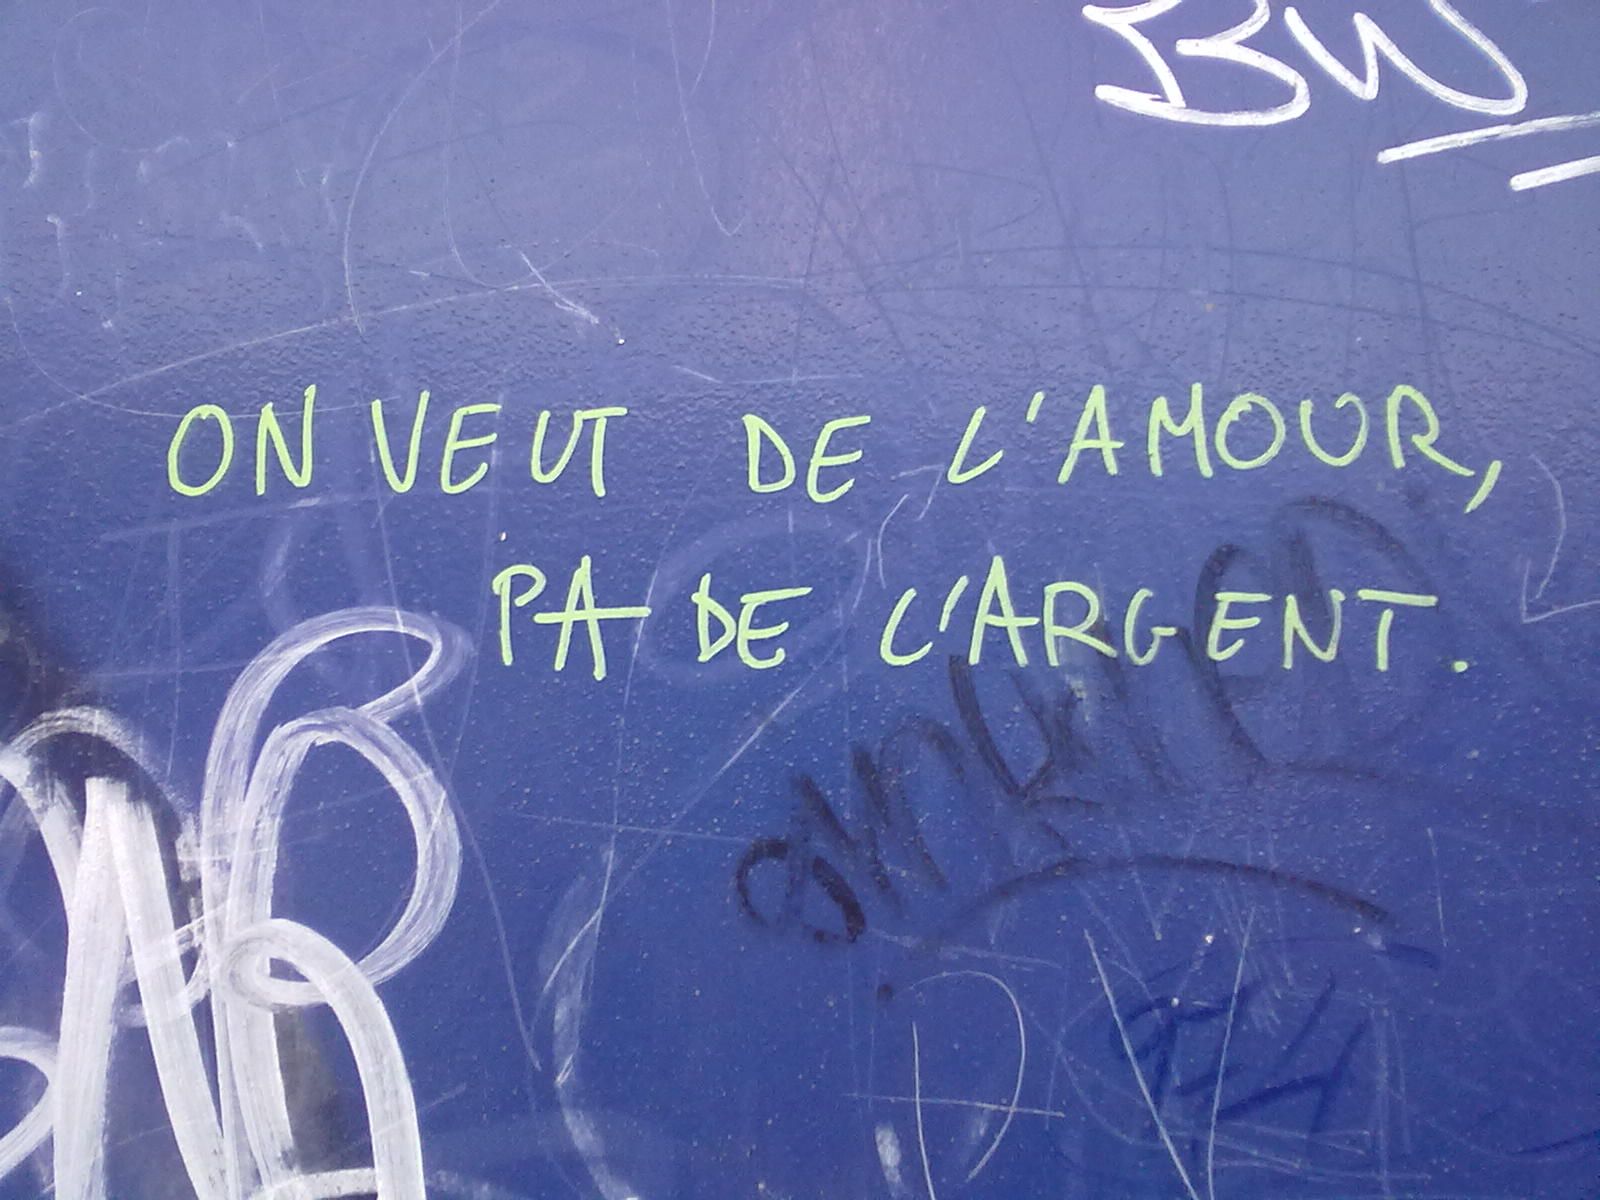 BW
ON VEUT DE L'AMOUR,
PA DE L'ARGENT.